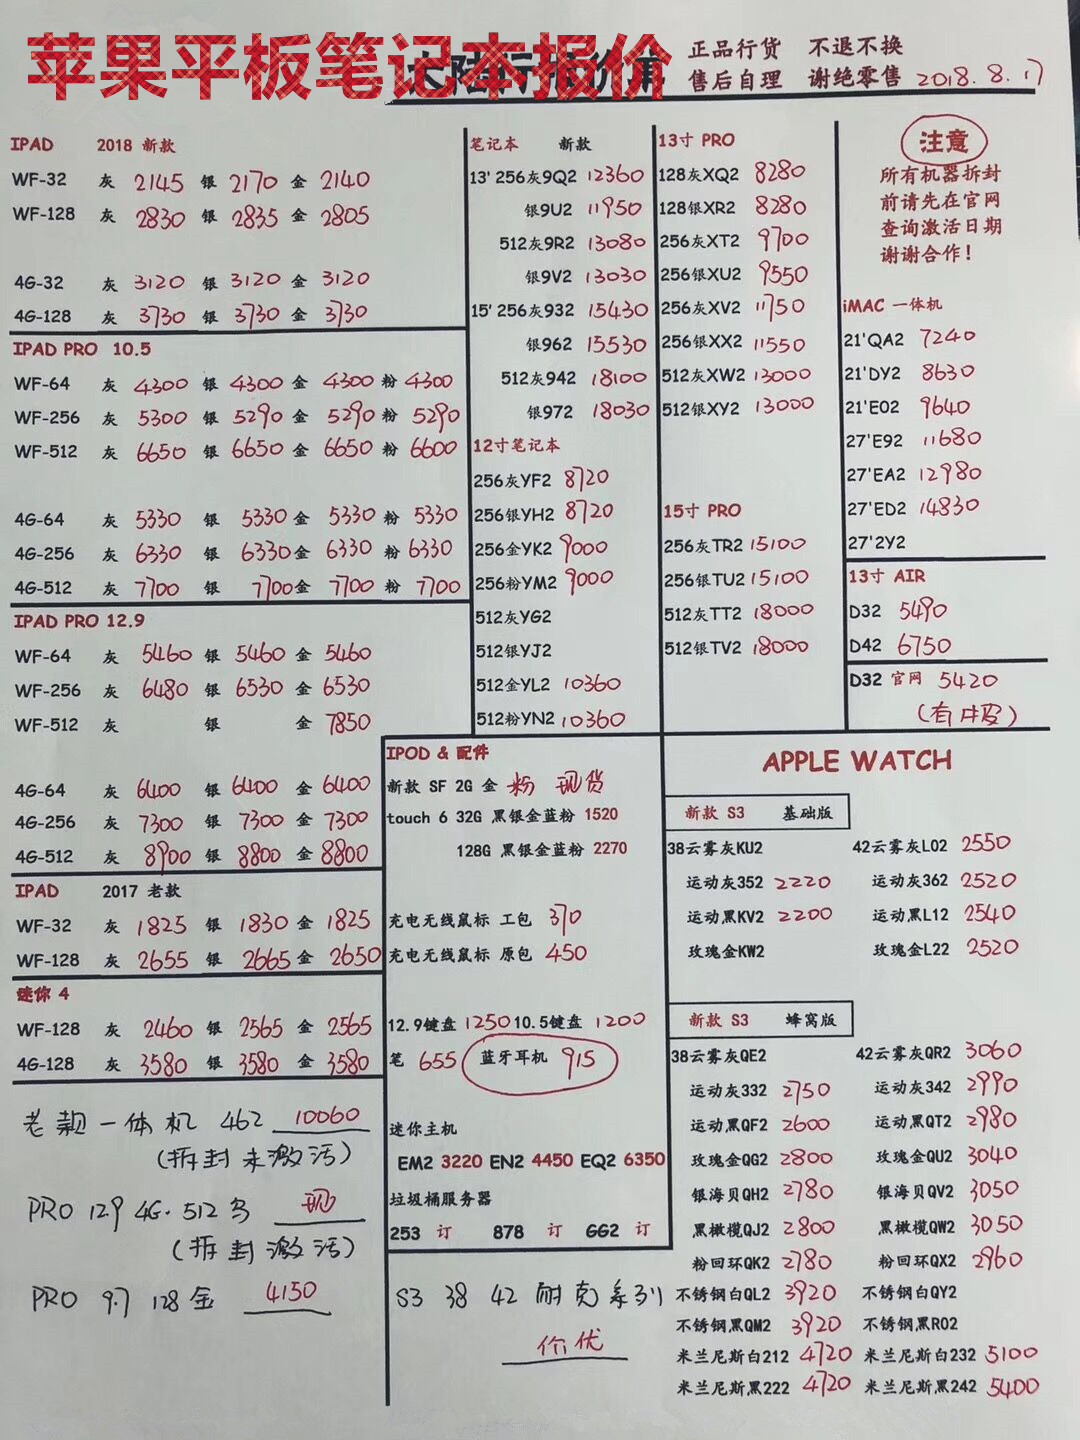 苹果平板笔记本报价
正品行货 不退不换
售后自理 谢绝零售 2018.8.17
IPAD 2018 新款
WF-32 灰 2145 银 2170 金 2140
WF-128 灰 2830 银 2835 金 2805
4G-32 灰 3120 银 3120 金 3120
4G-128 灰 3730 银 3730 金 3730
IPAD PRO 10.5
WF-64 灰 4300 银 4300 金 4300 粉 4300
WF-256 灰 5300 银 5290 金 5290 粉 5290
WF-512 灰 6650 银 6650 金 6650 粉 6600
4G-64 灰 5330 银 5330 金 5330 粉 5330
4G-256 灰 6330 银 6330 金 6330 粉 6330
4G-512 灰 7700 银 7700 金 7700 粉 7700
IPAD PRO 12.9
WF-64 灰 5460 银 5460 金 5460
WF-256 灰 6480 银 6530 金 6530
WF-512 灰 银 金 7850
4G-64 灰 6400 银 6400 金 6400
4G-256 灰 7300 银 7300 金 7300
4G-512 灰 8900 银 8800 金 8800
IPAD 2017 老款
WF-32 灰 1825 银 1830 金 1825
WF-128 灰 2655 银 2665 金 2650
迷你 4
WF-128 灰 2460 银 2565 金 2565
4G-128 灰 3580 银 3580 金 3580
老款一体机 462 10060
(拆封未激活)
PRO 12.9 4G.512 现
(拆封激活)
PRO 9.7 128金 4150
笔记本 新款
13' 256灰9Q2 12360
银9U2 11950
512灰9R2 13080
银9V2 13030
15' 256灰932 15430
银962 15530
512灰942 18100
银972 18030
12寸笔记本
256灰YF2 8720
256银YH2 8720
256金YK2 9000
256粉YM2 9000
512灰YG2
512银YJ2
512金YL2 10360
512粉YN2 10360
13寸 PRO
128灰XQ2 8280
128银XR2 8280
256灰XT2 9700
256银XU2 9550
256灰XV2 11750
256银XX2 11550
512灰XW2 13000
512银XY2 13000
15寸 PRO
256灰TR2 15100
256银TU2 15100
512灰TT2 18000
512银TV2 18000
注意
所有机器拆封
前请先在官网
查询激活日期
谢谢合作！
iMAC 一体机
21'QA2 7240
21'DY2 8630
21'E02 9640
27'E92 11680
27'EA2 12980
27'ED2 14830
27'2Y2
13寸 AIR
D32 5490
D42 6750
D32 官网 5420
(有皮)
IPOD & 配件
新款 SF 2G 金 粉 现货
touch 6 32G 黑银金蓝粉 1520
128G 黑银金蓝粉 2270
充电无线鼠标 工包 370
充电无线鼠标 原包 450
12.9键盘 1250 10.5键盘 1200
笔 655 蓝牙耳机 915
迷你主机
EM2 3220 EN2 4450 EQ2 6350
垃圾桶服务器
253 订 878 订 GG2 订
S3 38 42 耐克系列
价优
APPLE WATCH
新款 S3 基础版
38云雾灰KU2 42云雾灰L02 2550
运动灰352 2220 运动灰362 2520
运动黑KV2 2200 运动黑L12 2540
玫瑰金KW2 玫瑰金L22 2520
新款 S3 蜂窝版
38云雾灰QE2 42云雾灰QR2 3060
运动灰332 2750 运动灰342 2990
运动黑QF2 2600 运动黑QT2 2980
玫瑰金QG2 2800 玫瑰金QU2 3040
银海贝QH2 2780 银海贝QV2 3050
黑橄榄QJ2 2800 黑橄榄QW2 3050
粉回环QK2 2780 粉回环QX2 2960
不锈钢白QL2 3920 不锈钢白QY2
不锈钢黑QM2 3920 不锈钢黑R02
米兰尼斯白212 4720 米兰尼斯白232 5100
米兰尼斯黑222 4720 米兰尼斯黑242 5400